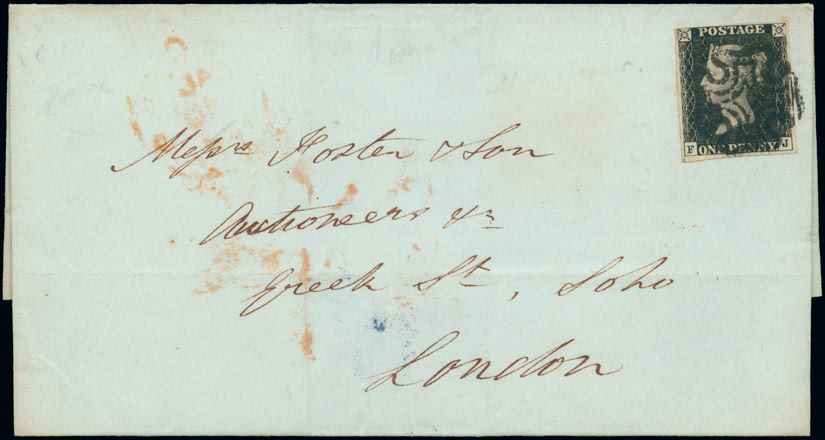 POSTAGE
F ONE PENNY J
Messrs Foster & Son
Auctioneers &c
Greek St, Soho
London